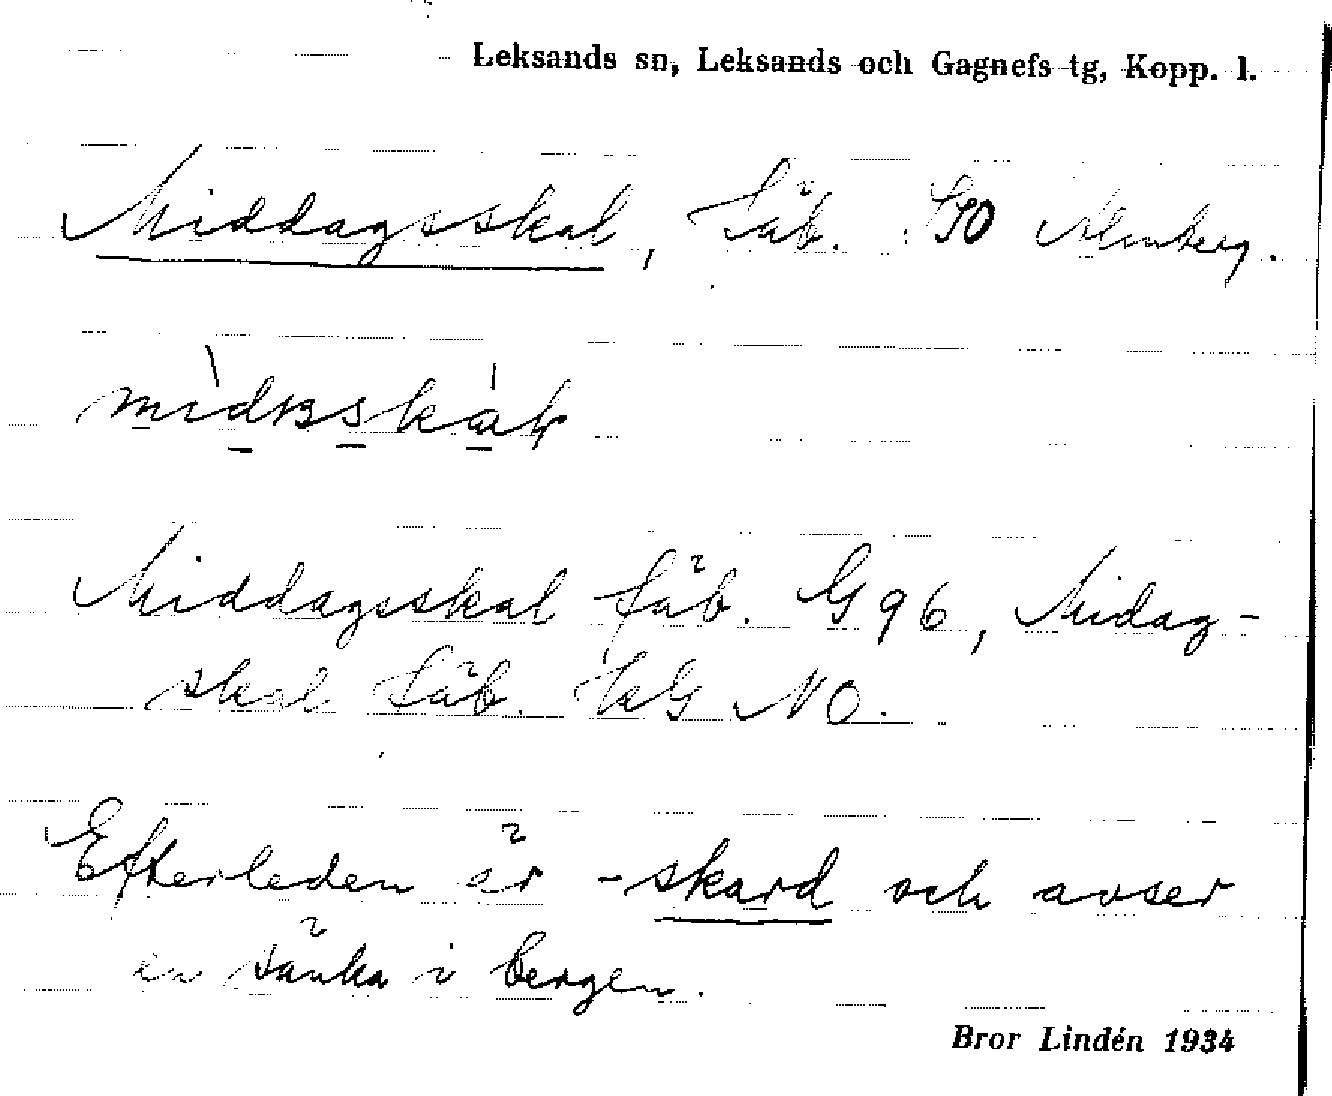 Leksands sn, Leksands och Gagnefs tg, Kopp. l.
Middagsskal, Fäb. SO Almberg.
Middagsskal fäb. G 96, Midag-
skal Fäb. KG NO.
Efterleden är -skard och avser
en sänka i bergen.
Bror Lindén 1934